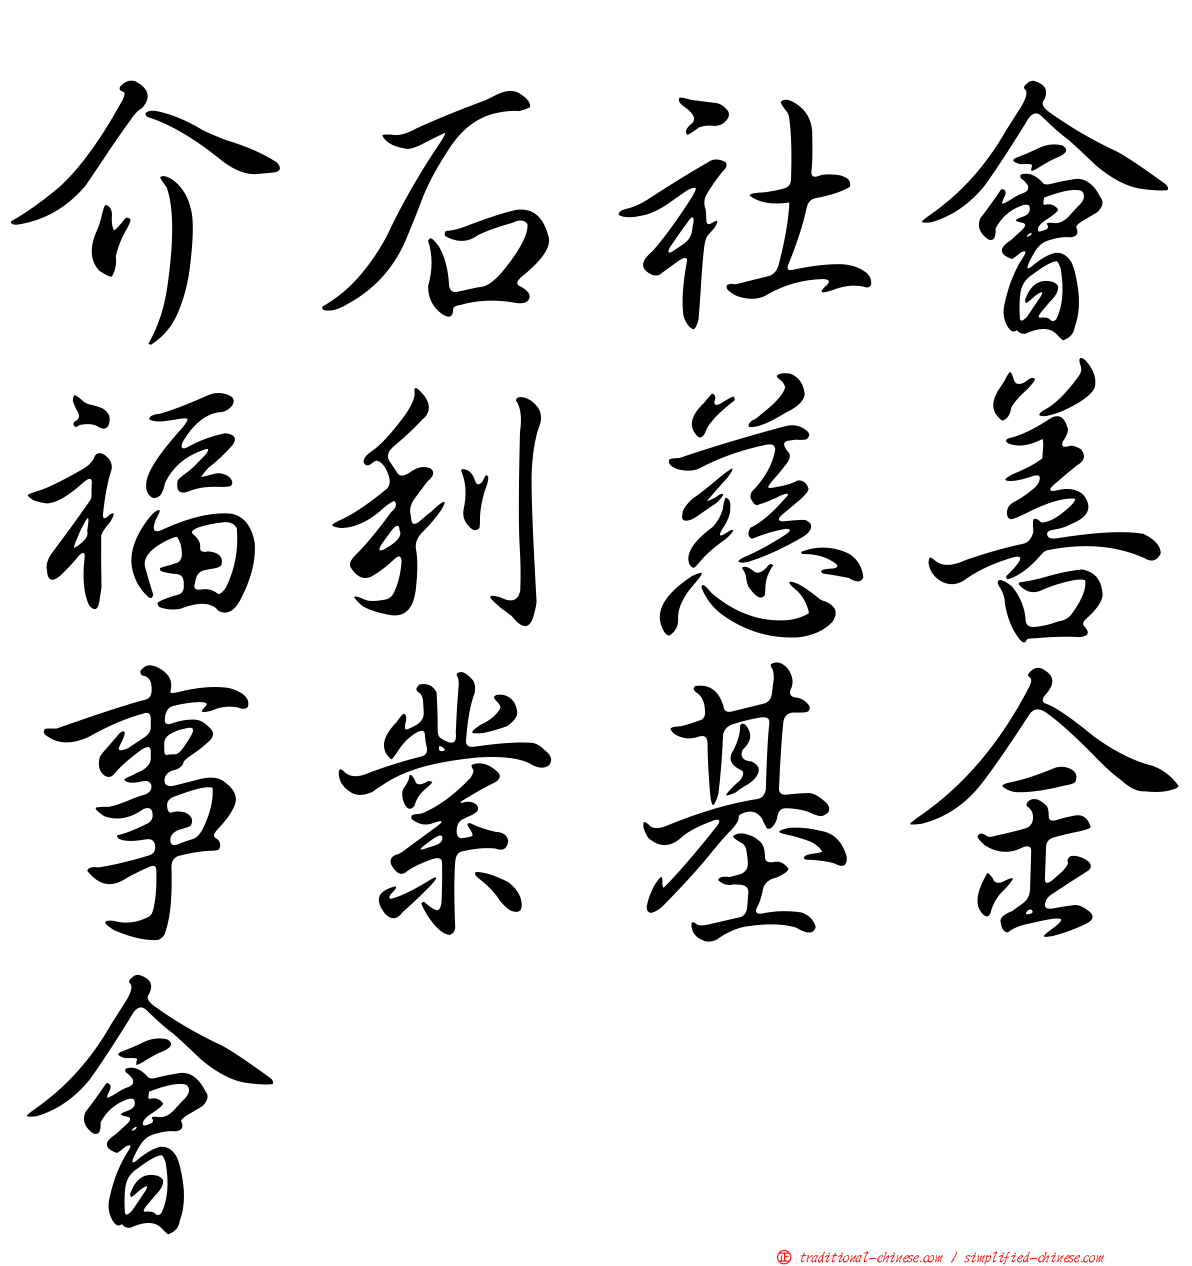 介石社會
福利慈善
事業基金
會
正 traditional-chinese.com / simplified-chinese.com